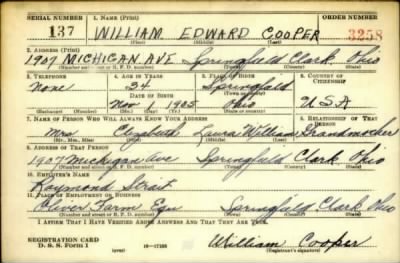 SERIAL NUMBER 1. NAME (Print) ORDER NUMBER
137 WILLIAM EDWARD COOPER 3258
(First) (Middle) (Last)
2. ADDRESS (Print)
1907 MICHIGAN AVE Springfield Clark Ohio
(Number and street or R. F. D. number) (Town) (County) (State)
3. TELEPHONE 4. AGE IN YEARS 5. PLACE OF BIRTH 6. COUNTRY OF CITIZENSHIP
None 34 Springfield U.S.A
DATE OF BIRTH
Nov 1905 Ohio
(Exchange) (Number) (Mo.) (Day) (Yr.) (State or country)
7. NAME OF PERSON WHO WILL ALWAYS KNOW YOUR ADDRESS 8. RELATIONSHIP OF THAT PERSON
Mrs Elizabeth Laura William Grandmother
(Mr., Mrs., Miss) (First) (Middle) (Last)
9. ADDRESS OF THAT PERSON
1907 Michigan Ave Springfield Clark Ohio
(Number and street or R. F. D. number) (Town) (County) (State)
10. EMPLOYER'S NAME
Raymond Strait
11. PLACE OF EMPLOYMENT OR BUSINESS
Oliver Farm Equ Springfield Clark Ohio
(Number and street or R. F. D. number) (Town) (County) (State)
I AFFIRM THAT I HAVE VERIFIED ABOVE ANSWERS AND THAT THEY ARE TRUE.
REGISTRATION CARD
D. S. S. Form 1 (over) 16—17105 William Cooper
(Registrant's signature)